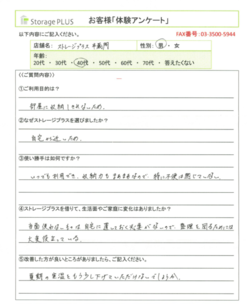 Storage PLUS
お客様「体験アンケート」
以下内容にご記入ください。
FAX番号:03-3500-5944
店舗名: ストレージプラス 半蔵門
性別: 男 ・ 女
年齢:
20代 ・ 30代 ・ 40代 ・ 50代 ・ 60代 ・ 70代 ・ 答えたくない
《ご質問内容》
①ご利用目的は?
収納しきれないため。
②なぜストレージプラスを選びましたか?
自宅から近いため。
③使い勝手は如何ですか?
いつでも利用でき、収納力もまあまあなので、特に不便は感じていない。
④ストレージプラスを借りて、生活面やご家族に変化はありましたか?
自宅に置いておく必要がないので、整理を図るためには
大変役立っている。
⑤改善した方が良いところがありましたら、ご記入ください。
夏期の室温をもう少し下げていただければと